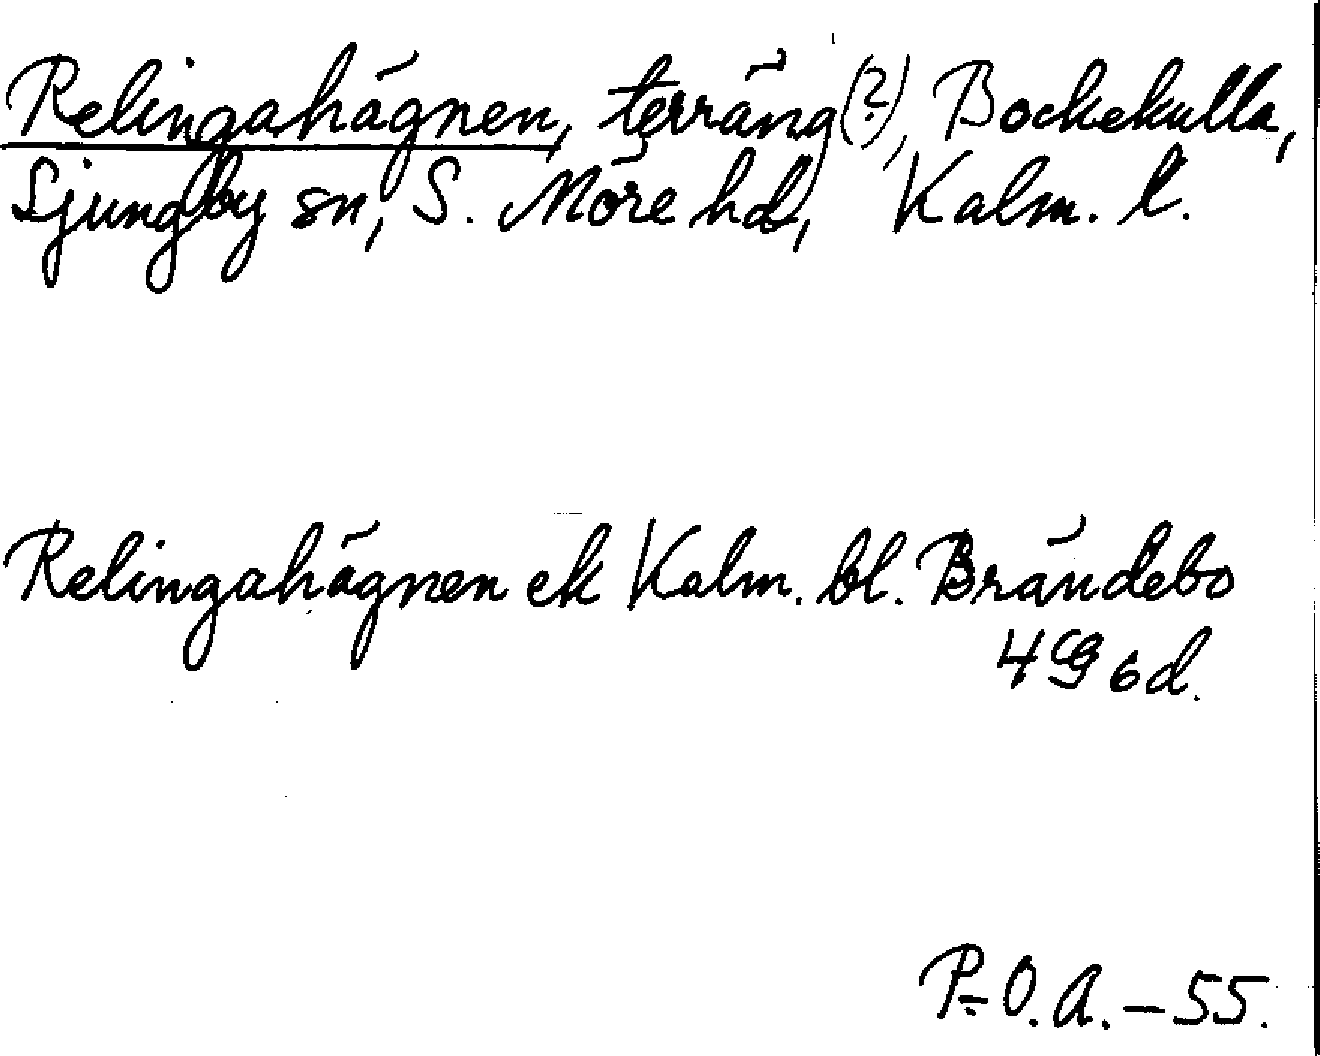 Relingahägnen, terräng(?), Bockekulla,
Ljungby sn, S. Möre hd, Kalm. l.
Relingahägnen ek Kalm. bl. Brändebo
4 g 6 d.
P.-O. A. – 55.